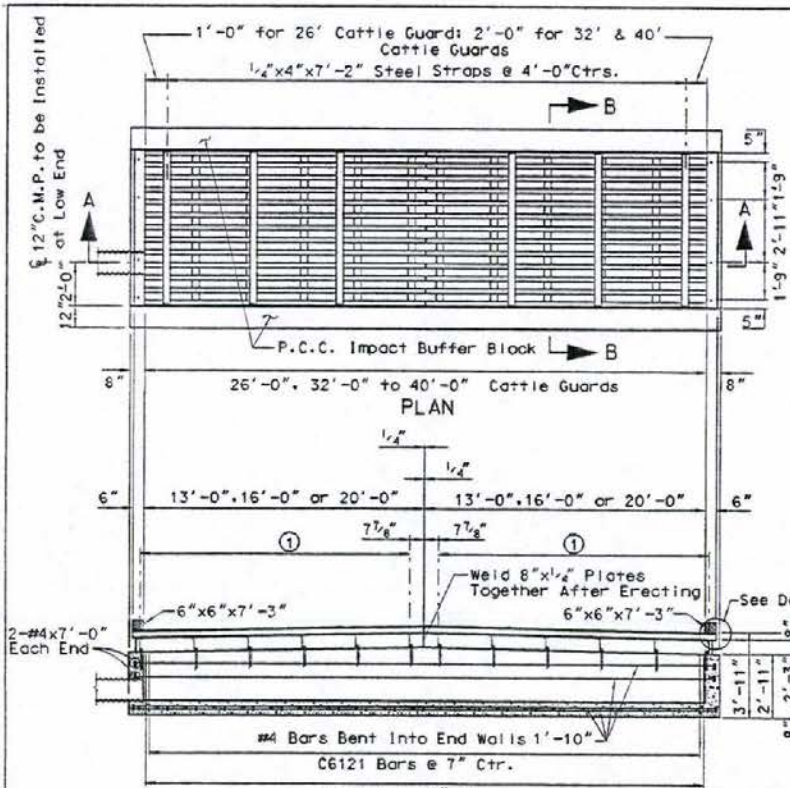 1'-0" for 26' Cattle Guard: 2'-0" for 32' & 40'
Cattle Guards
1/4"x4"x7'-2" Steel Straps @ 4'-0"Ctrs.
℄ 12"C.M.P. to be Installed
at Low End
B
A
A
5"
1'-9"
2'-11"
1'-9"
5"
2'-0"
12"
P.C.C. Impact Buffer Block
B
8"
26'-0", 32'-0" to 40'-0" Cattle Guards
8"
PLAN
1/4"
1/4"
6"
13'-0",16'-0" or 20'-0"
13'-0",16'-0" or 20'-0"
6"
7 7/8"
7 7/8"
①
①
Weld 8"x1/4" Plates
Together After Erecting
6"x6"x7'-3"
6"x6"x7'-3"
See
2-#4x7'-0"
Each End
3'-11"
2'-11"
2'-3"
#4 Bars Bent Into End Walls 1'-10"
C6121 Bars @ 7" Ctr.